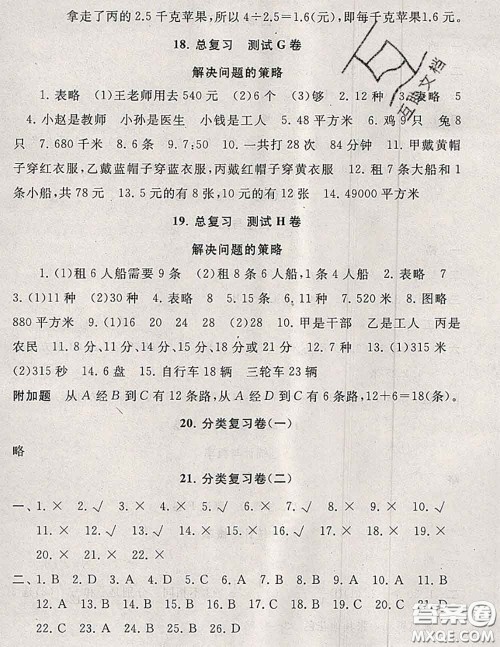 拿走了丙的 2.5 千克苹果,所以 4÷2.5=1.6(元),即每千克苹果1.6 元。
18. 总复习 测试 G 卷
解决问题的策略
1. 表略 (1)王老师用去 540 元 (2)6 个 (3)够 2. 12 种 3. 表略 5
4. 小赵是教师 小孙是医生 小钱是工人 5. 48 平方米 6. 鸡 9 只 兔 8
只 7. 680 千米 8. 30 米 9. 10. 一共打 28 次 84 分钟 11. 甲戴黄帽
子穿红衣服,乙戴蓝帽子穿蓝衣服,丙戴红帽子穿黄衣服 12. 租 7 条大船和 1
条小船,共 78 元 13. 5 元的有 8 张,10 元的有 12 张 14. 49000 平方米
19. 总复习 测试 H 卷
解决问题的策略
1. (1)租 6 人船需要 9 条 (2)租 8 条 6 人船,1 条 4 人船 2. 表略 7
3. (1)11 种 (2)30 种 4. 表略 8 5. 15 条 6. 11 种 7. 520 米 8. 图略
880 平方米 9. (1)16 20 24 28 (2)32 10. 甲是干部 乙是工人 丙是
农民 11. 8 分、11 分、14 分、15 分、18 分或 21 分 12. 7 种 13. (1)315 米
(2)315 秒 14. 6 盘 15. 自行车 18 辆 三轮车 23 辆
附加题 从 A 经 B 到 C 有 12 条路,从 A 经 D 到 C 有 6 条路,12+6=18(条)。
20. 分类复习卷(一)
略
21. 分类复习卷(二)
一、1. × 2. √ 3. × 4. × 5. √ 6. √ 7. × 8. × 9. × 10. √
11. × 12. × 13. √ 14. × 15. √ 16. √ 17. × 18. × 19. ×
20. × 21. × 22. ×
二、1. B 2. D 3. A 4. D 5. C 6. A 7. B 8. A 9. C 10. B 11. B
12. A 13. C 14. D 15. C 16. A 17. B 18. A 19. C 20. D 21. D
22. C 23. A 24. B 25. B 26. D
互助文档
答案圈
MXQE.COM